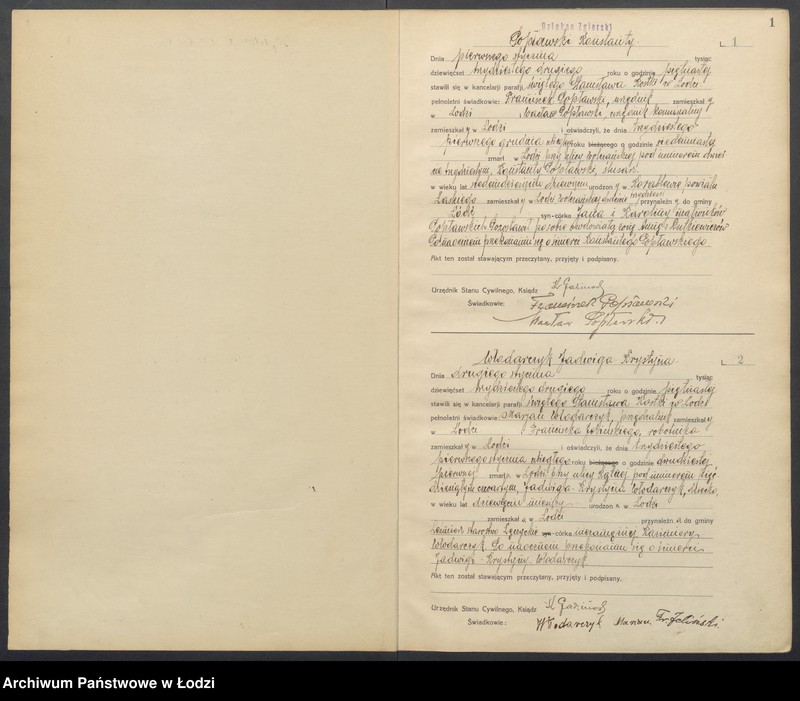 Dziekan Zgierski
1
Popławski Konstanty. L. 1
Dnia pierwszego stycznia tysiąc
dziewięćset trzydziestego drugiego roku o godzinie piętnastej
stawili się w kancelarji parafji świętego Stanisława Kostki w Łodzi
pełnoletni świadkowie: Franciszek Popławski, urzędnik zamieszkały
w Łodzi i Wacław Popławski, urzędnik komunalny
zamieszkały w Łodzi i oświadczyli, że dnia trzydziestego
pierwszego grudnia ubiegłego roku bieżącego o godzinie siedemnastej
zmarł w Łodzi przy ulicy pod numerem dwieście
trzydziestym, Konstanty Popławski, ślusarz.
w wieku lat siedemdziesięciu urodzony w powiatu
Łaskiego zamieszkały w Łodzi przynależn. do gminy
Łódź syn-córka Jana i Karoliny małżonków
Popławskich. Pozostawił po sobie owdowiałą żonę
Po naocznem przekonaniu się o śmierci Konstantego Popławskiego
Akt ten został stawającym przeczytany, przyjęty i podpisany.
Urzędnik Stanu Cywilnego, Ksiądz
Świadkowie: Franciszek Popławski
Wacław Popławski
Włodarczyk Jadwiga Krystyna L. 2
Dnia drugiego stycznia tysiąc
dziewięćset trzydziestego drugiego roku o godzinie piętnastej
stawili się w kancelarji parafji świętego Stanisława Kostki w Łodzi
pełnoletni świadkowie: Marjan Włodarczyk, zamieszkały
w Łodzi i Franciszek robotnik
zamieszkały w Łodzi i oświadczyli, że dnia trzydziestego
pierwszego stycznia ubiegłego roku bieżącego o godzinie dwudziestej
pierwszej zmarła w Łodzi przy ulicy Kątnej pod numerem
czwartym, Jadwiga-Krystyna Włodarczyk, dziecko,
w wieku lat dziewięciu miesięcy urodzon a w Łodzi
zamieszkał a w Łodzi przynależn. a do gminy
starostwo syn-córka niezamężnej Kazimiery
Włodarczyk. Po naocznem przekonaniu się o śmierci
Jadwigi-Krystyny Włodarczyk
Akt ten został stawającym przeczytany, przyjęty i podpisany.
Urzędnik Stanu Cywilnego, Ksiądz
Świadkowie: Włodarczyk Marian Fr.
Archiwum Państwowe w Łodzi